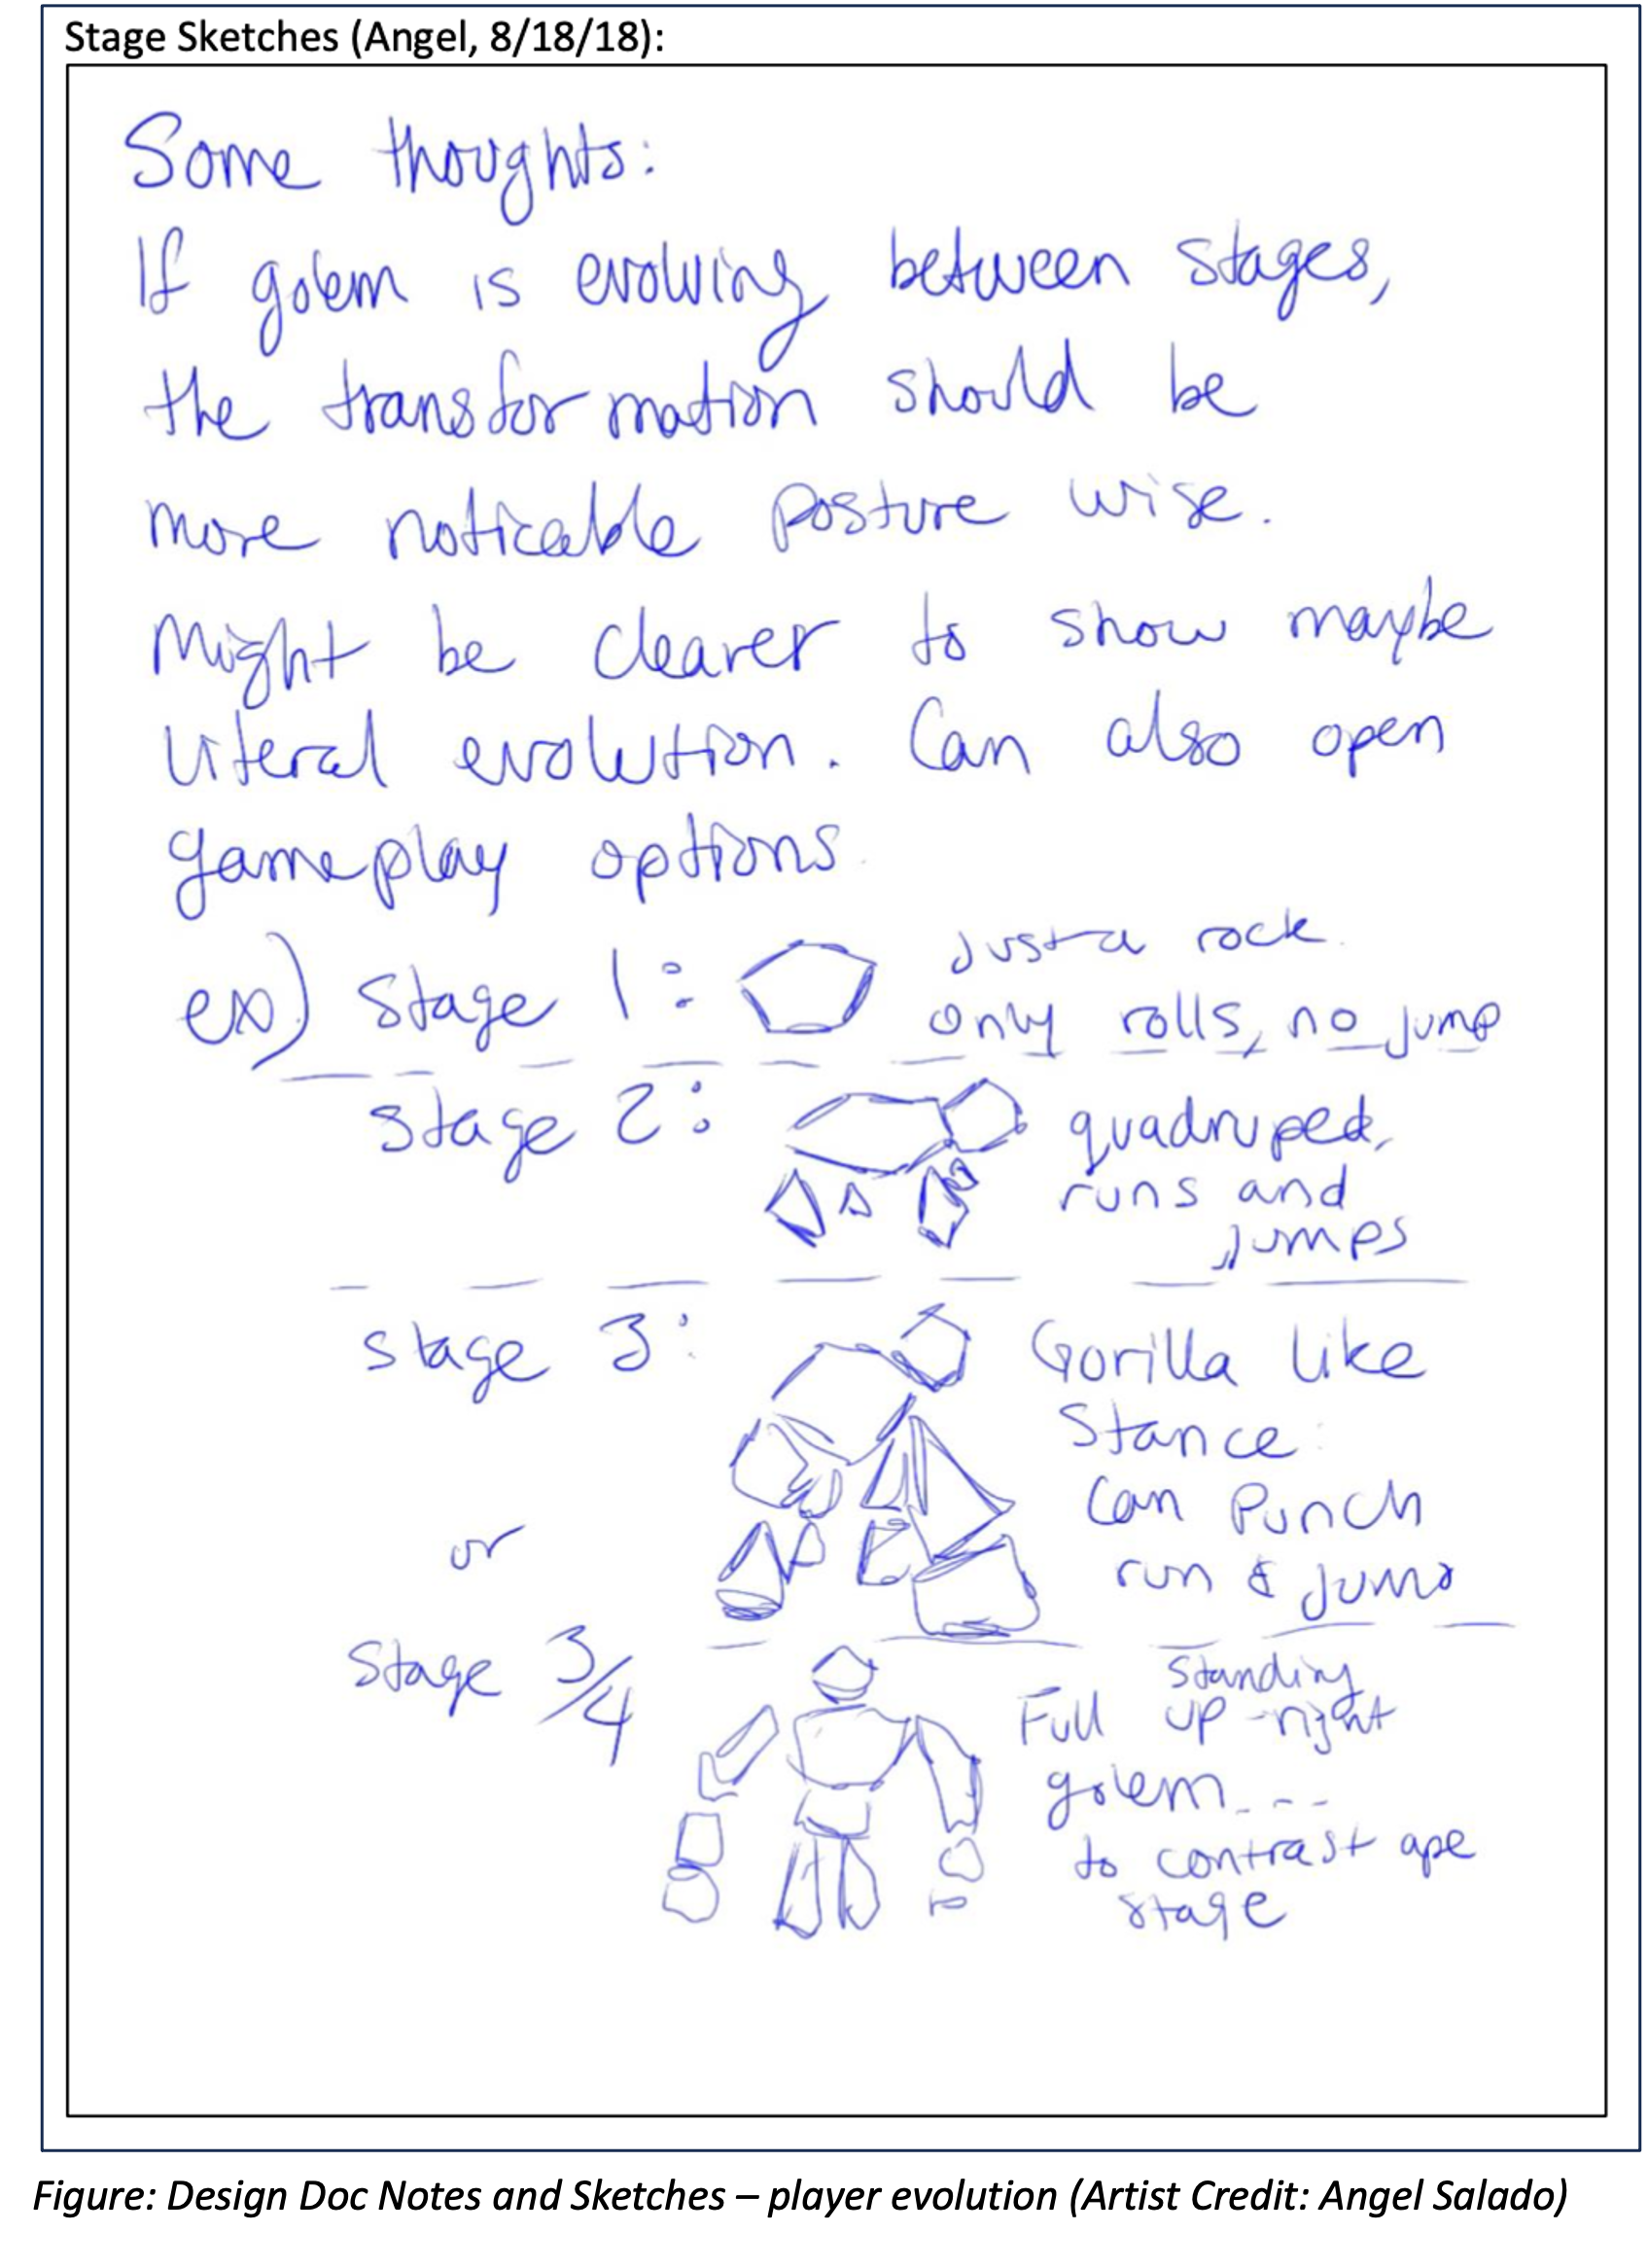 Stage Sketches (Angel, 8/18/18):
Some thoughts:
If golem is evolving between stages,
the transformation should be
more noticable posture wise.
Might be clearer to show maybe
literal evolution. Can also open
gameplay options.
ex) Stage 1: Just a rock.
only rolls, no jump
Stage 2: quadruped,
runs and
jumps
Stage 3: Gorilla like
Stance:
Can Punch
run & jump
or
Stage 3/4
Standing
Full up-right
golem...
to contrast ape
stage
Figure: Design Doc Notes and Sketches – player evolution (Artist Credit: Angel Salado)